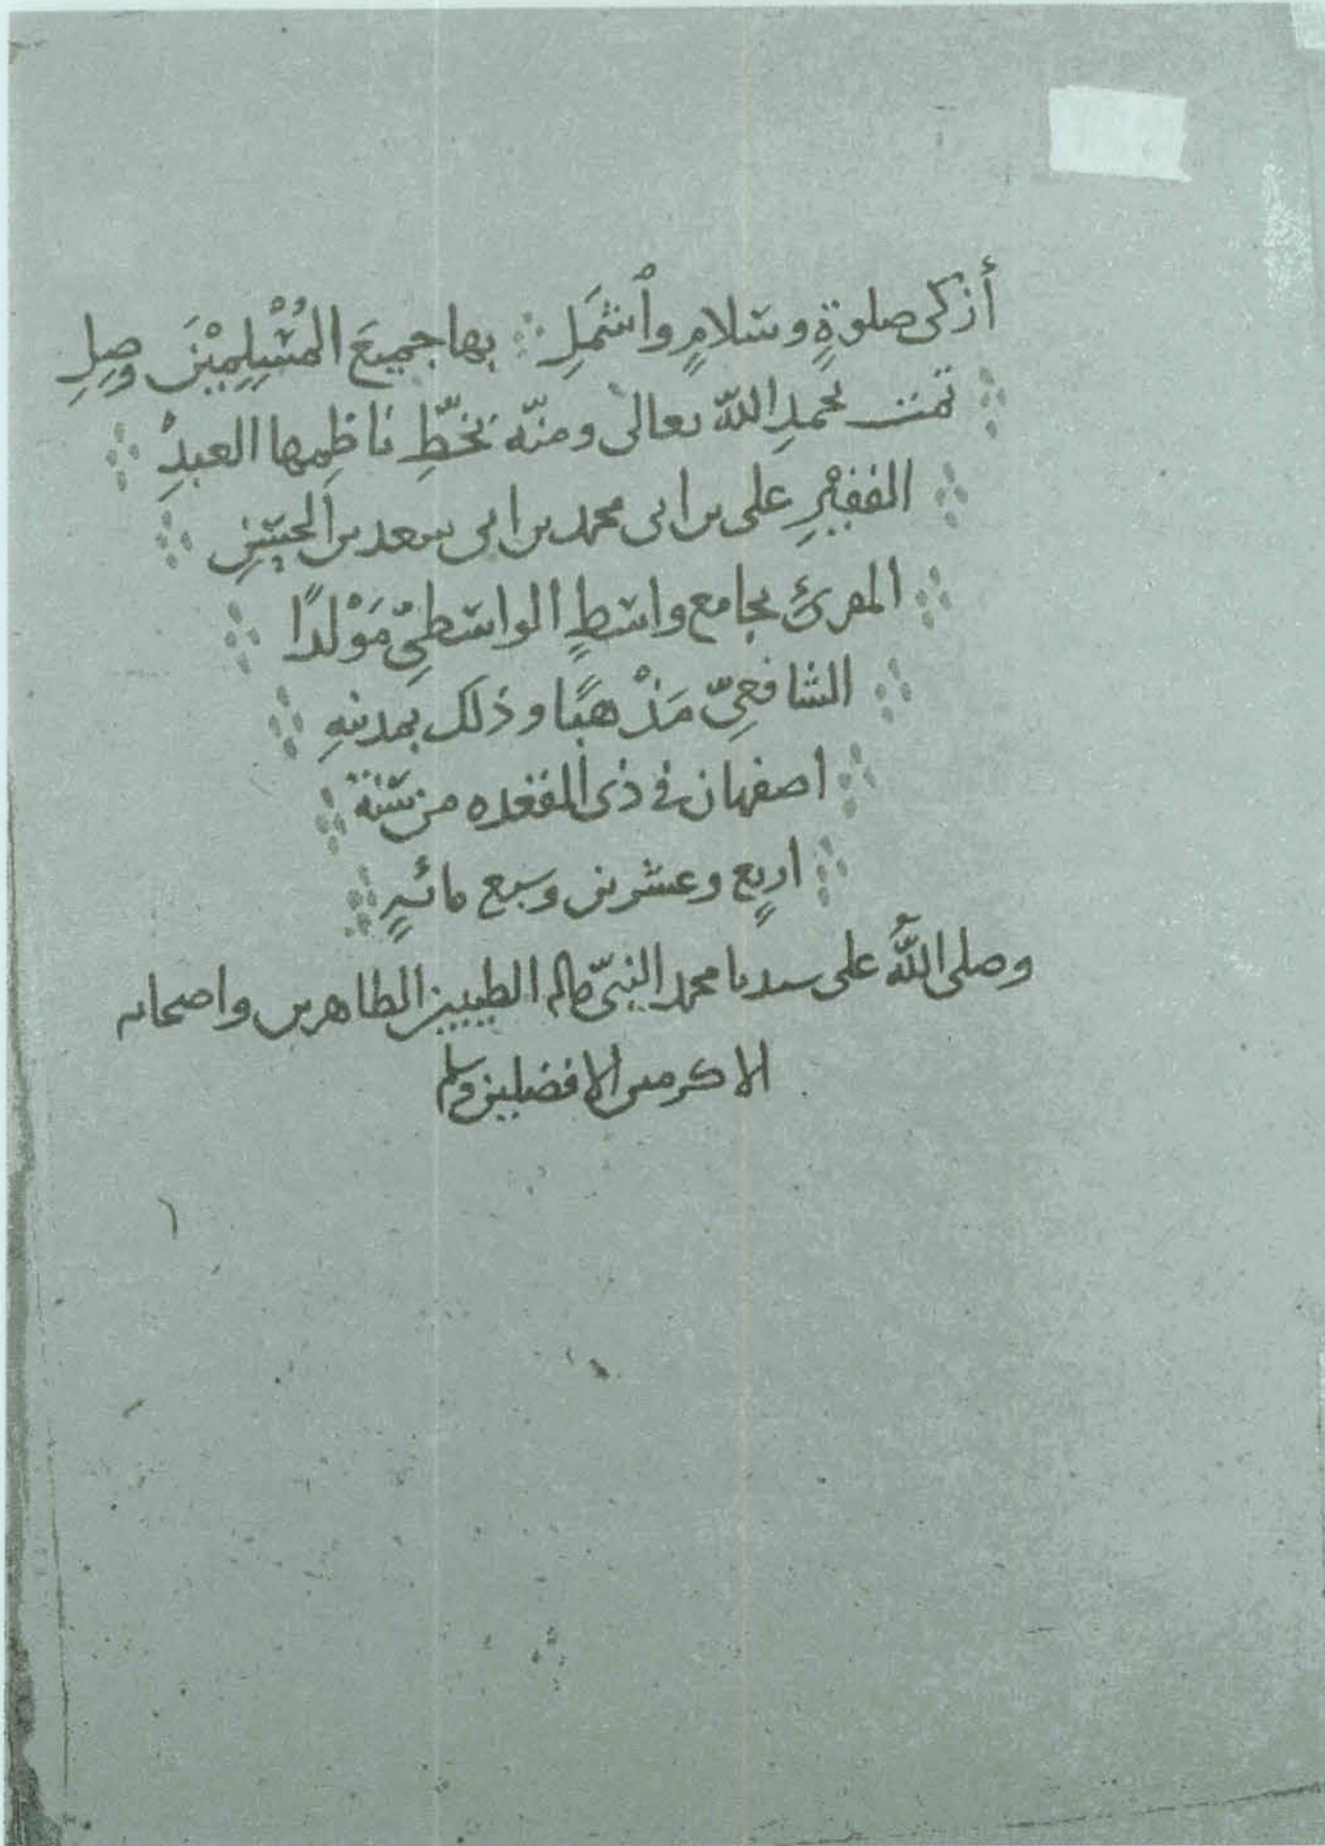 أزكى صلوةٍ وسلامٍ وٱشْمَلِ ∴ بها جميعَ المُسْلِمِيْنَ وصِلِ
تمت بحمدِ الله تعالى ومنّه بخطِّ ناظِمها العبدِ
الفقيْرِ على بن ابى محمد بن ابى سعد بن الحسنِ
المقرئ بجامع واسطٍ الواسطىّ مَوْلدًا
الشافعىّ مَذْهبًا وذلك بمدينهِ
اصفهان فى ذى القعده من سنة
اربعٍ وعشرين وسبع مائهٍ
وصلى اللهُ على سيدنا محمد النبىّ واله الطيبين الطاهرين واصحابه
الاكرمين الافضلين وسلم